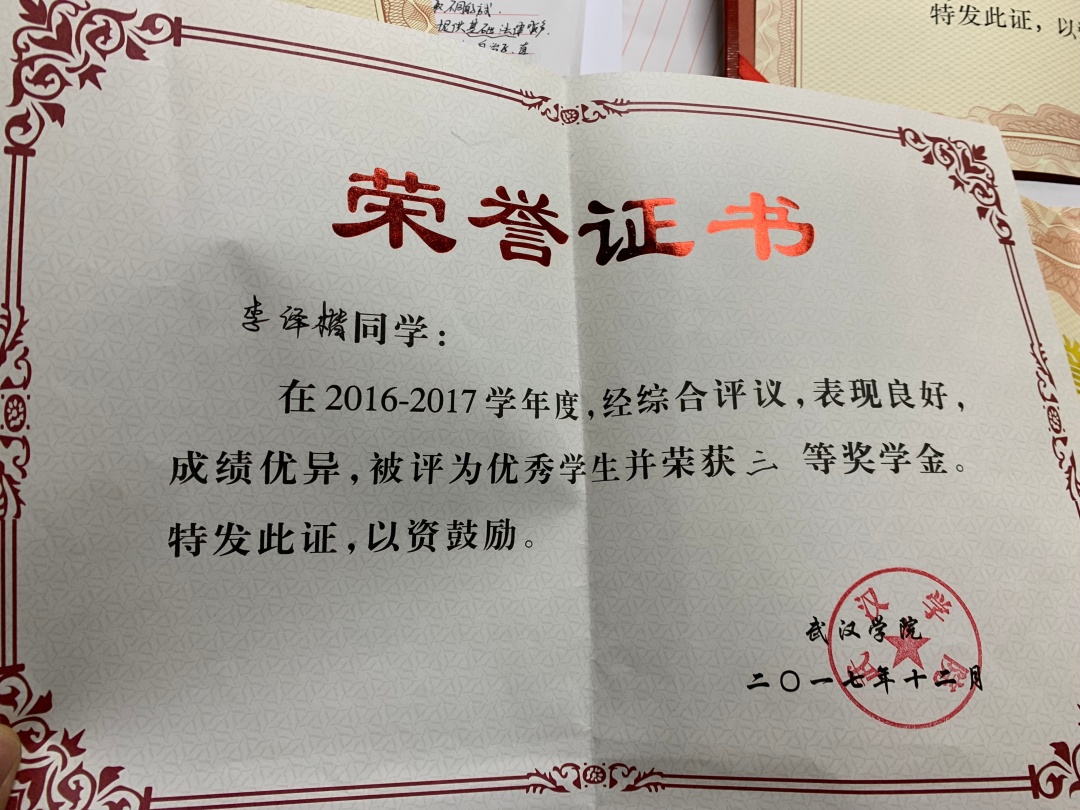 提供基础法律服务
特发此证，以
荣誉证书
李泽楷同学：
在2016-2017学年度，经综合评议，表现良好，
成绩优异，被评为优秀学生并荣获三等奖学金。
特发此证，以资鼓励。
武汉学院
武汉学院
二〇一七年十二月